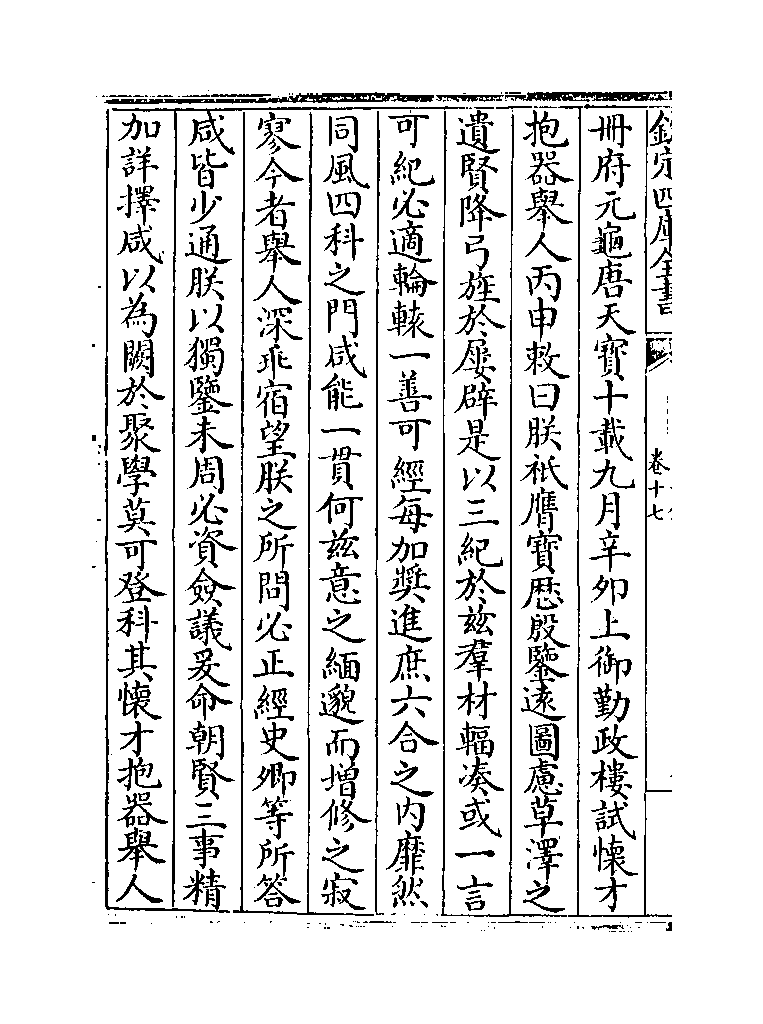 欽定四庫全書
卷十七
冊府元龜唐天寶十載九月辛夘上御勤政樓試懷才
抱器舉人丙申敕曰朕祇膺寶歴殷鑒逺圖慮草澤之
遺賢降弓旌於屢辟是以三紀於兹羣材輻凑或一言
可紀必適輪轅一善可經每加奬進庶六合之内靡然
同風四科之門咸能一貫何兹意之緬邈而增修之寂
寥今者舉人深乖宿望朕之所問必正經史卿等所答
咸皆少通朕以獨鑒未周必資僉議爰命朝賢三事精
加詳擇咸以為闕於聚學莫可登科其懷才抱器舉人